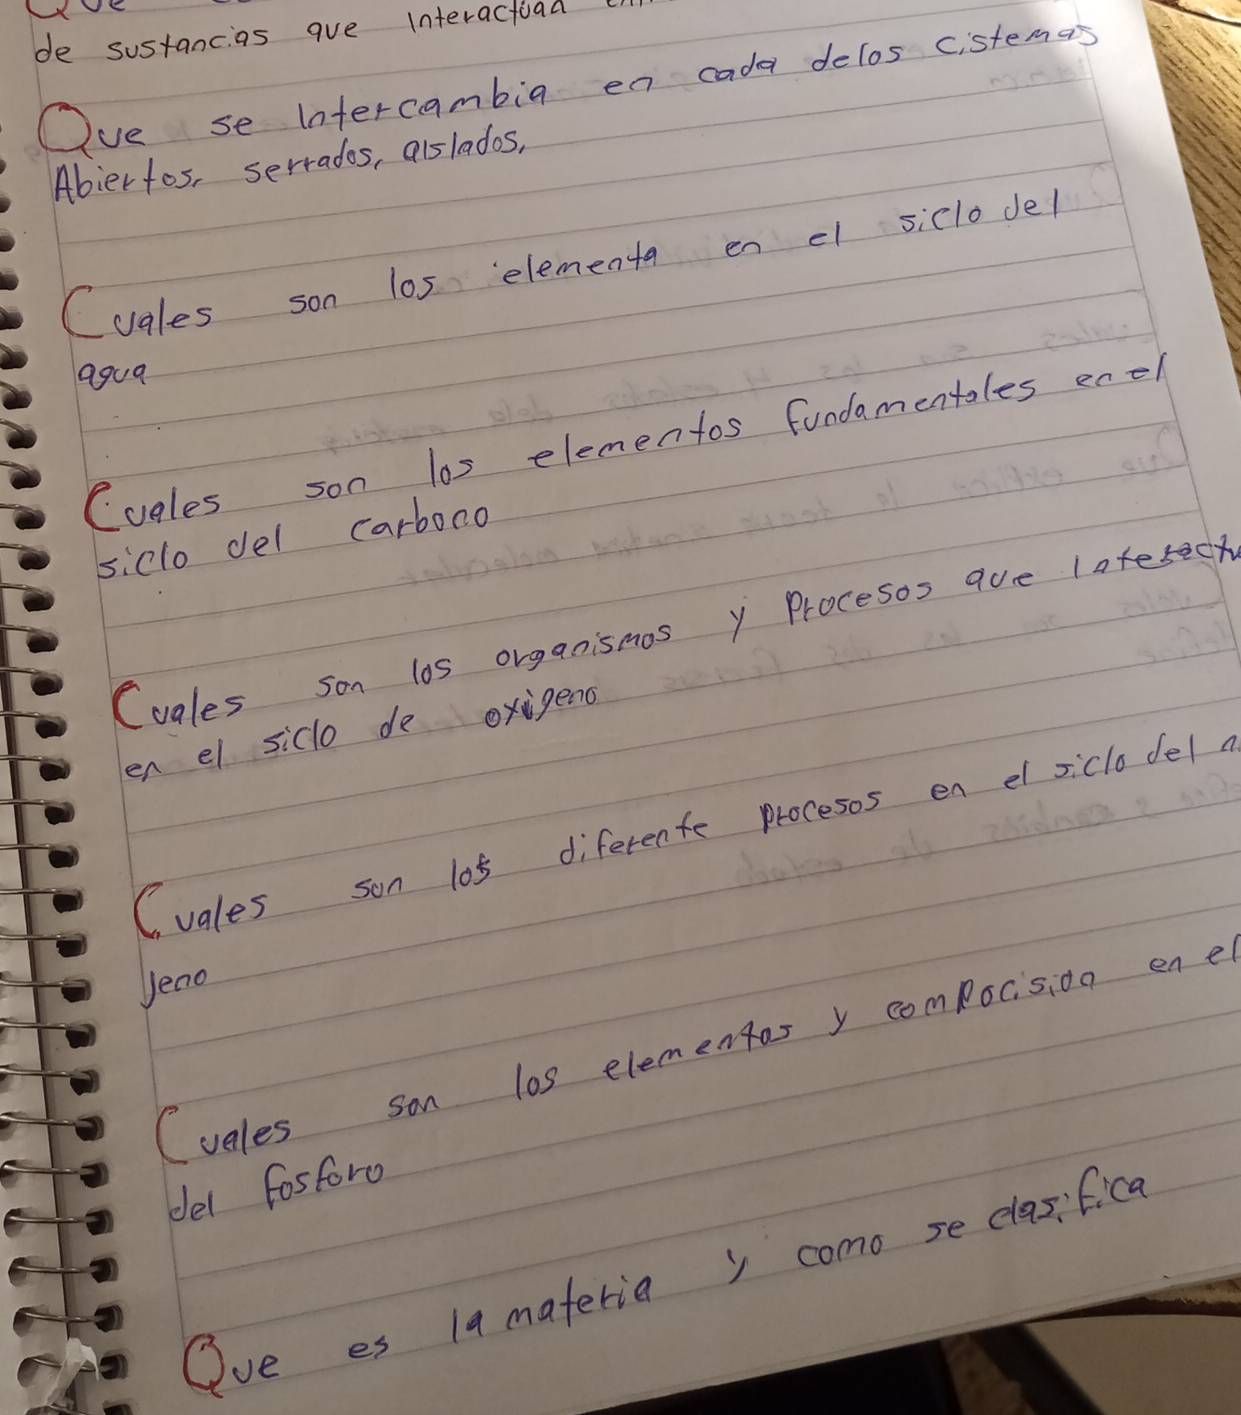 Que
de sustancias que Interactuan
Que se Intercambia en cada delos cistemas
Abiertos, serrados, aislados,
Cuales son los elementa en el siclo del
agua
Cuales son los elementos fundamentales en el
siclo del carbono
Cuales son los organismos y Procesos que Interactu
en el siclo de oxigeno
Cuales son los diferente procesos en el siclo del n
Jeno
Cuales son los elementos y compocision en el
del fosforo
Que es la materia y como se clasifica